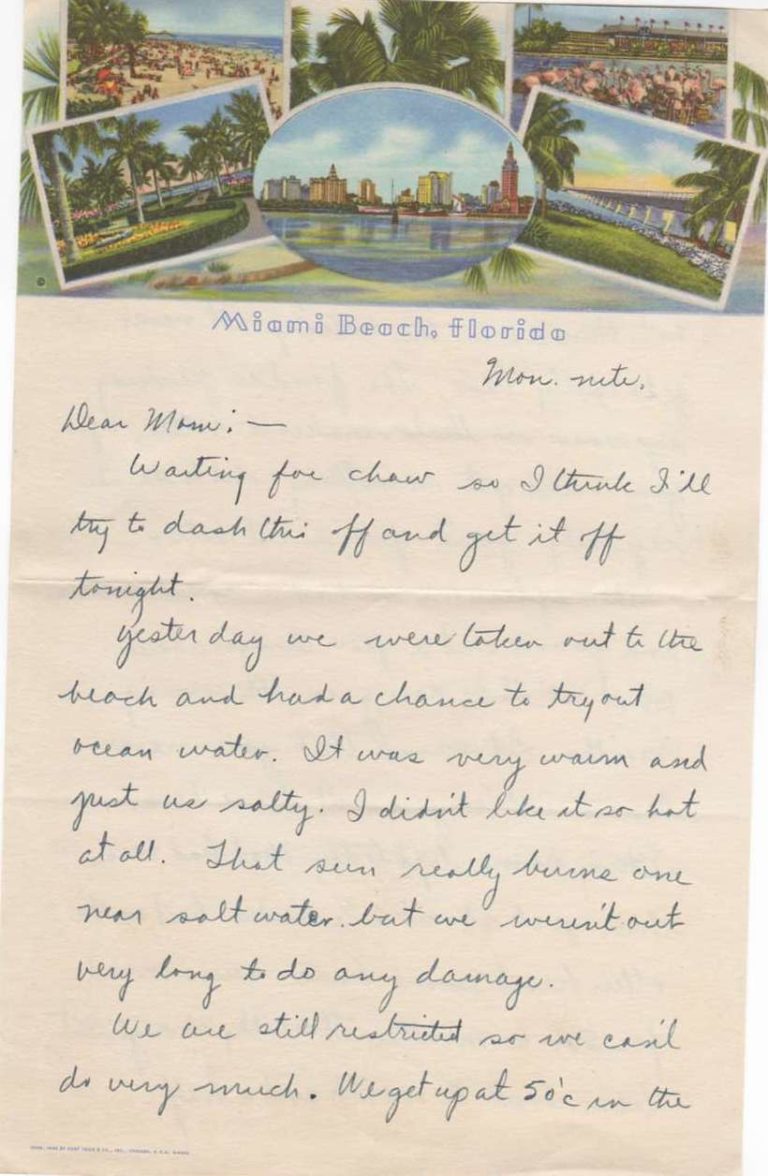 Miami Beach, Florida
Mon. nite.
Dear Mom: —
Waiting for chow so I think I'll
try to dash this off and get it off
tonight.
Yesterday we were taken out to the
beach and had a chance to try out
ocean water. It was very warm and
just as salty. I didn't like it so hot
at all. That sun really burns one
near salt water. but we weren't out
very long to do any damage.
We are still restricted so we can't
do very much. We get up at 5 o'c in the